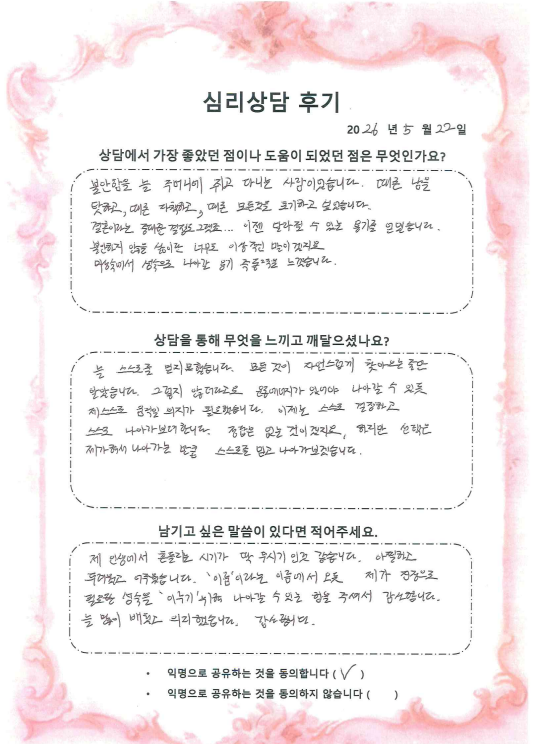 심리상담 후기
2026 년 5 월 22일
상담에서 가장 좋았던 점이나 도움이 되었던 점은 무엇인가요?
불안함을 늘 주머니에 쥐고 다니는 사람이었습니다. 때론 남을
탓하고, 때론 자책하고, 때론 모든것을 포기하고 싶었습니다.
결혼이라는 중대한 결정도 그랬고... 이젠 달라질 수 있는 용기를 얻었습니다.
불안하지 않은 삶이란 너무도 이상적인 말이겠지요
미성숙에서 성숙으로 나아갈 용기 죽음으로 느꼈습니다.
상담을 통해 무엇을 느끼고 깨달으셨나요?
늘 스스로를 믿지 못했습니다. 모든 것이 자연스럽게 찾아오는 줄만
알았습니다. 그렇지 않더라고요 나아갈 수 있듯
제 스스로 움직일 의지가 필요했습니다. 이제는 스스로 결정하고
스스로 나아가보려 합니다. 정답은 없는 것이겠지요, 하지만 선택은
제가해서 나아가는 만큼 스스로를 믿고 나아가보겠습니다.
남기고 싶은 말씀이 있다면 적어주세요.
제 인생에서 흔들리는 시기가 딱 무시기인것 같습니다. 아찔하고
무더웠고 어두웠습니다. '이룸'이라는 이름에서 오듯 제가 진정으로
필요한 성숙을 '이루기'위해 나아갈 수 있는 힘을 주셔서 감사합니다.
늘 많이 배웠고 의지했습니다. 감사합니다.
• 익명으로 공유하는 것을 동의합니다 ( √ )
• 익명으로 공유하는 것을 동의하지 않습니다 ( )